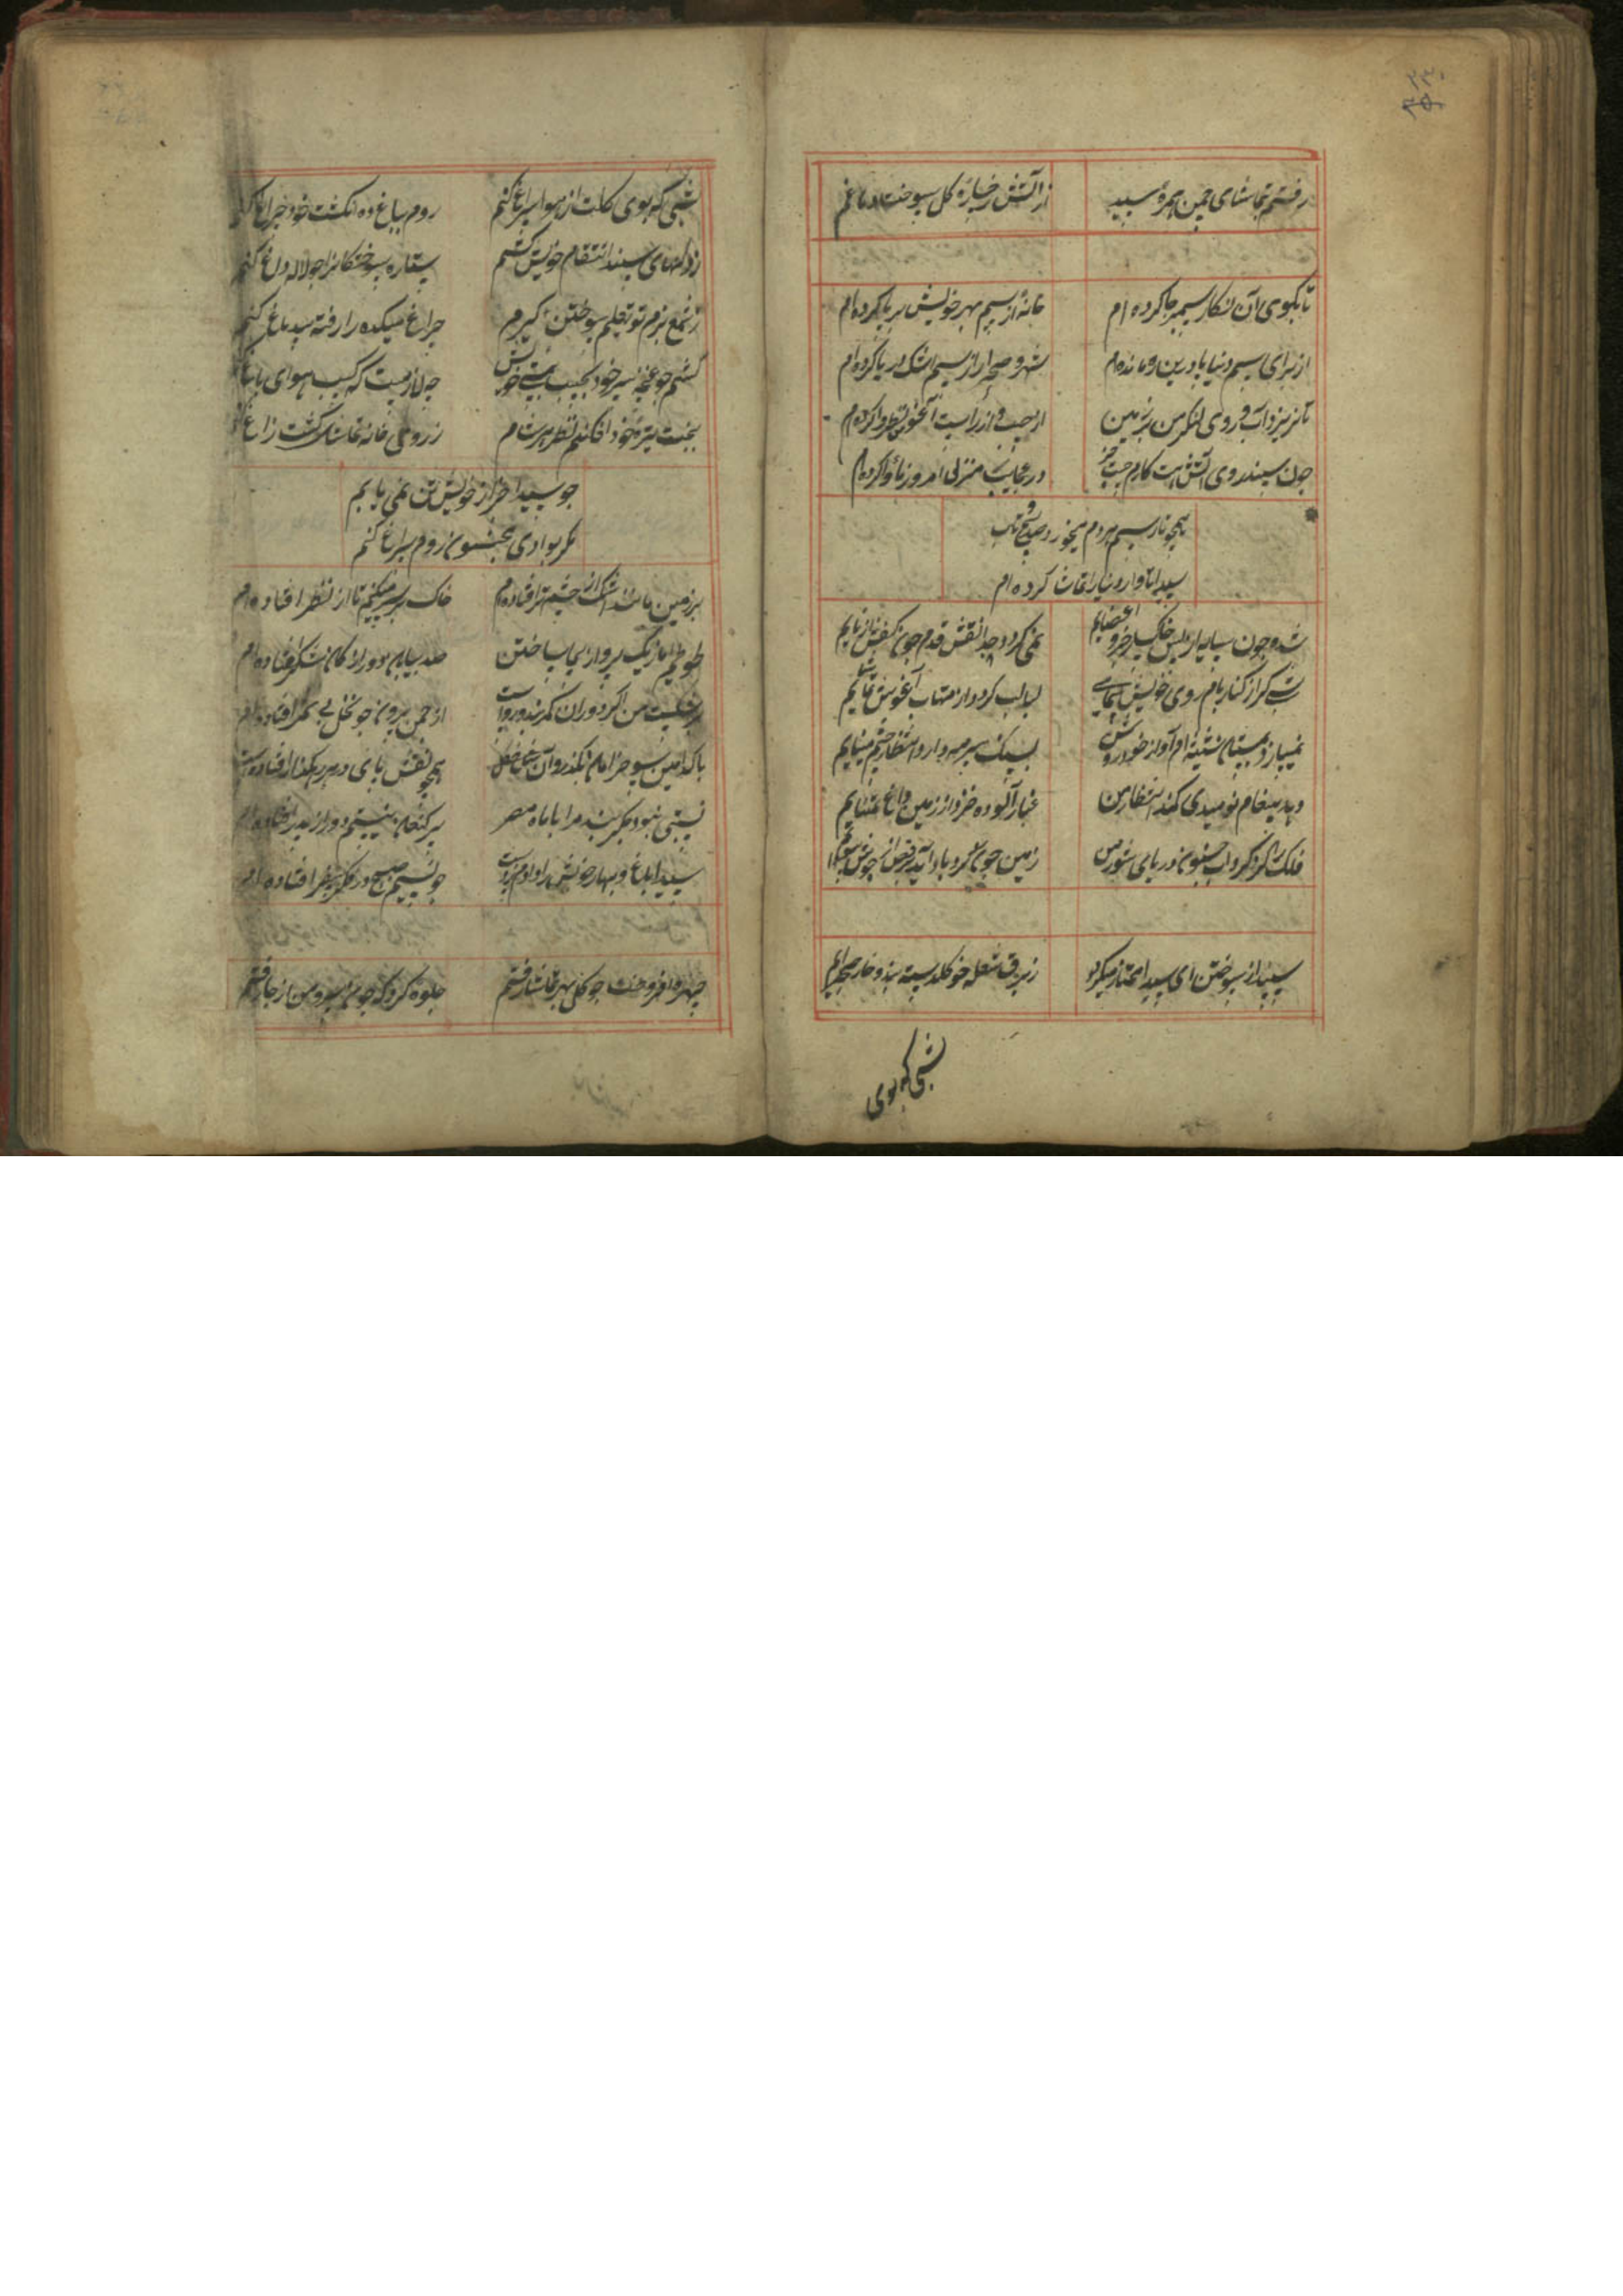 ۲۳۰
رفتم بتماشای چمن همره سیدا از آتش رخساره کل سوخت دماغم
تا بکوی آن نکار سیمبر جا کرده ام خانهٔ از سیم بهر خویش بر پا کرده ام
از برای سیم دنیا بادرین و مانده ام شهر و صحرا را ز سیم اشک دریا کرده ام
تا نریزد آب روی لنکر من بر زمین از
چون سپند روی آتش است کارم جست خیز در عجایب منزلی امروز ماوا کرده ام
همچو نار سیم هردم میخورد صد پیچ و تاب
سیدا تا وارو نیارا تماشا کرده ام
شود چون سایه از پس خاکسار خیزو اعضایم نمی کردد جدا نقش قدم چون کفش از پایم
شبی کر از کنار بام روی خویش بنمایی لبالب کردد از مهتاب آغوش تماشایم
نمی سازد شنیده ام آواز خود روشن سبک سرمه دارد انتظار چشم بینایم
دهد پیغام نومیدی کند انتظار من غبار آلوده خیزد از زمین داغ تمنایم
فلک را کرد کرداب جنون دریای شور من زمین چون کرد باد آید برقص از جوش سودایم
سپند از سوختن ای سیدا ممتاز میکردد ز برق شعله خو کلدسته بندد خار صحرایم
شبی که بوی
شبی که بوی کلت از هوا سراغ کنم روم بباغ و ده انکشت خود چراغ کنم
ز دلهای سپند انتقام خویش کشم ستاره سوختکانرا چو لاله داغ کنم
ز شمع بزم تو تعلیم سوختن کیرم چراغ میکده را رفته سیر باغ کنم
کشم چو غنچه سر خود بجیب خویش چه لازمست که کسب هوای باغ کنم
ببخت تیرهٔ خود افکنم نظر هر شام ز روی خانه تماشای کشت زاغ کنم
چو سیدا خبر از خویشتن نمی یابم
مکر بوادی مجنون روم سراغ کنم
بر زمین مانند اشک از چشم تر افتاده ام خاک بر سر میکنم تا از نظر افتاده ام
طوطیم اما ز یک پرواز بیجا ساختن صد بیابان دور از کان شکر افتاده ام
بر شکست من اکر دوران کمر بندد رواست از چمن بیرون چو نخل بی ثمر افتاده ام
با کدامین سو خرامان بکذرد آن شوخ همچو نقش پای در هر رهکذار افتاده است
نیستی نبود مکر بیند مرا با ماه مصر پیر کنعان نیستم دور از پدر افتاده ام
سیدا باغ و بهار خویش را دادم ز دست چون نسیم صبح در فکر سفر افتاده ام
چهره افروخت چو کل بهر تماشا رفتم جلوه کرد که چون سرو من از جا رفتم